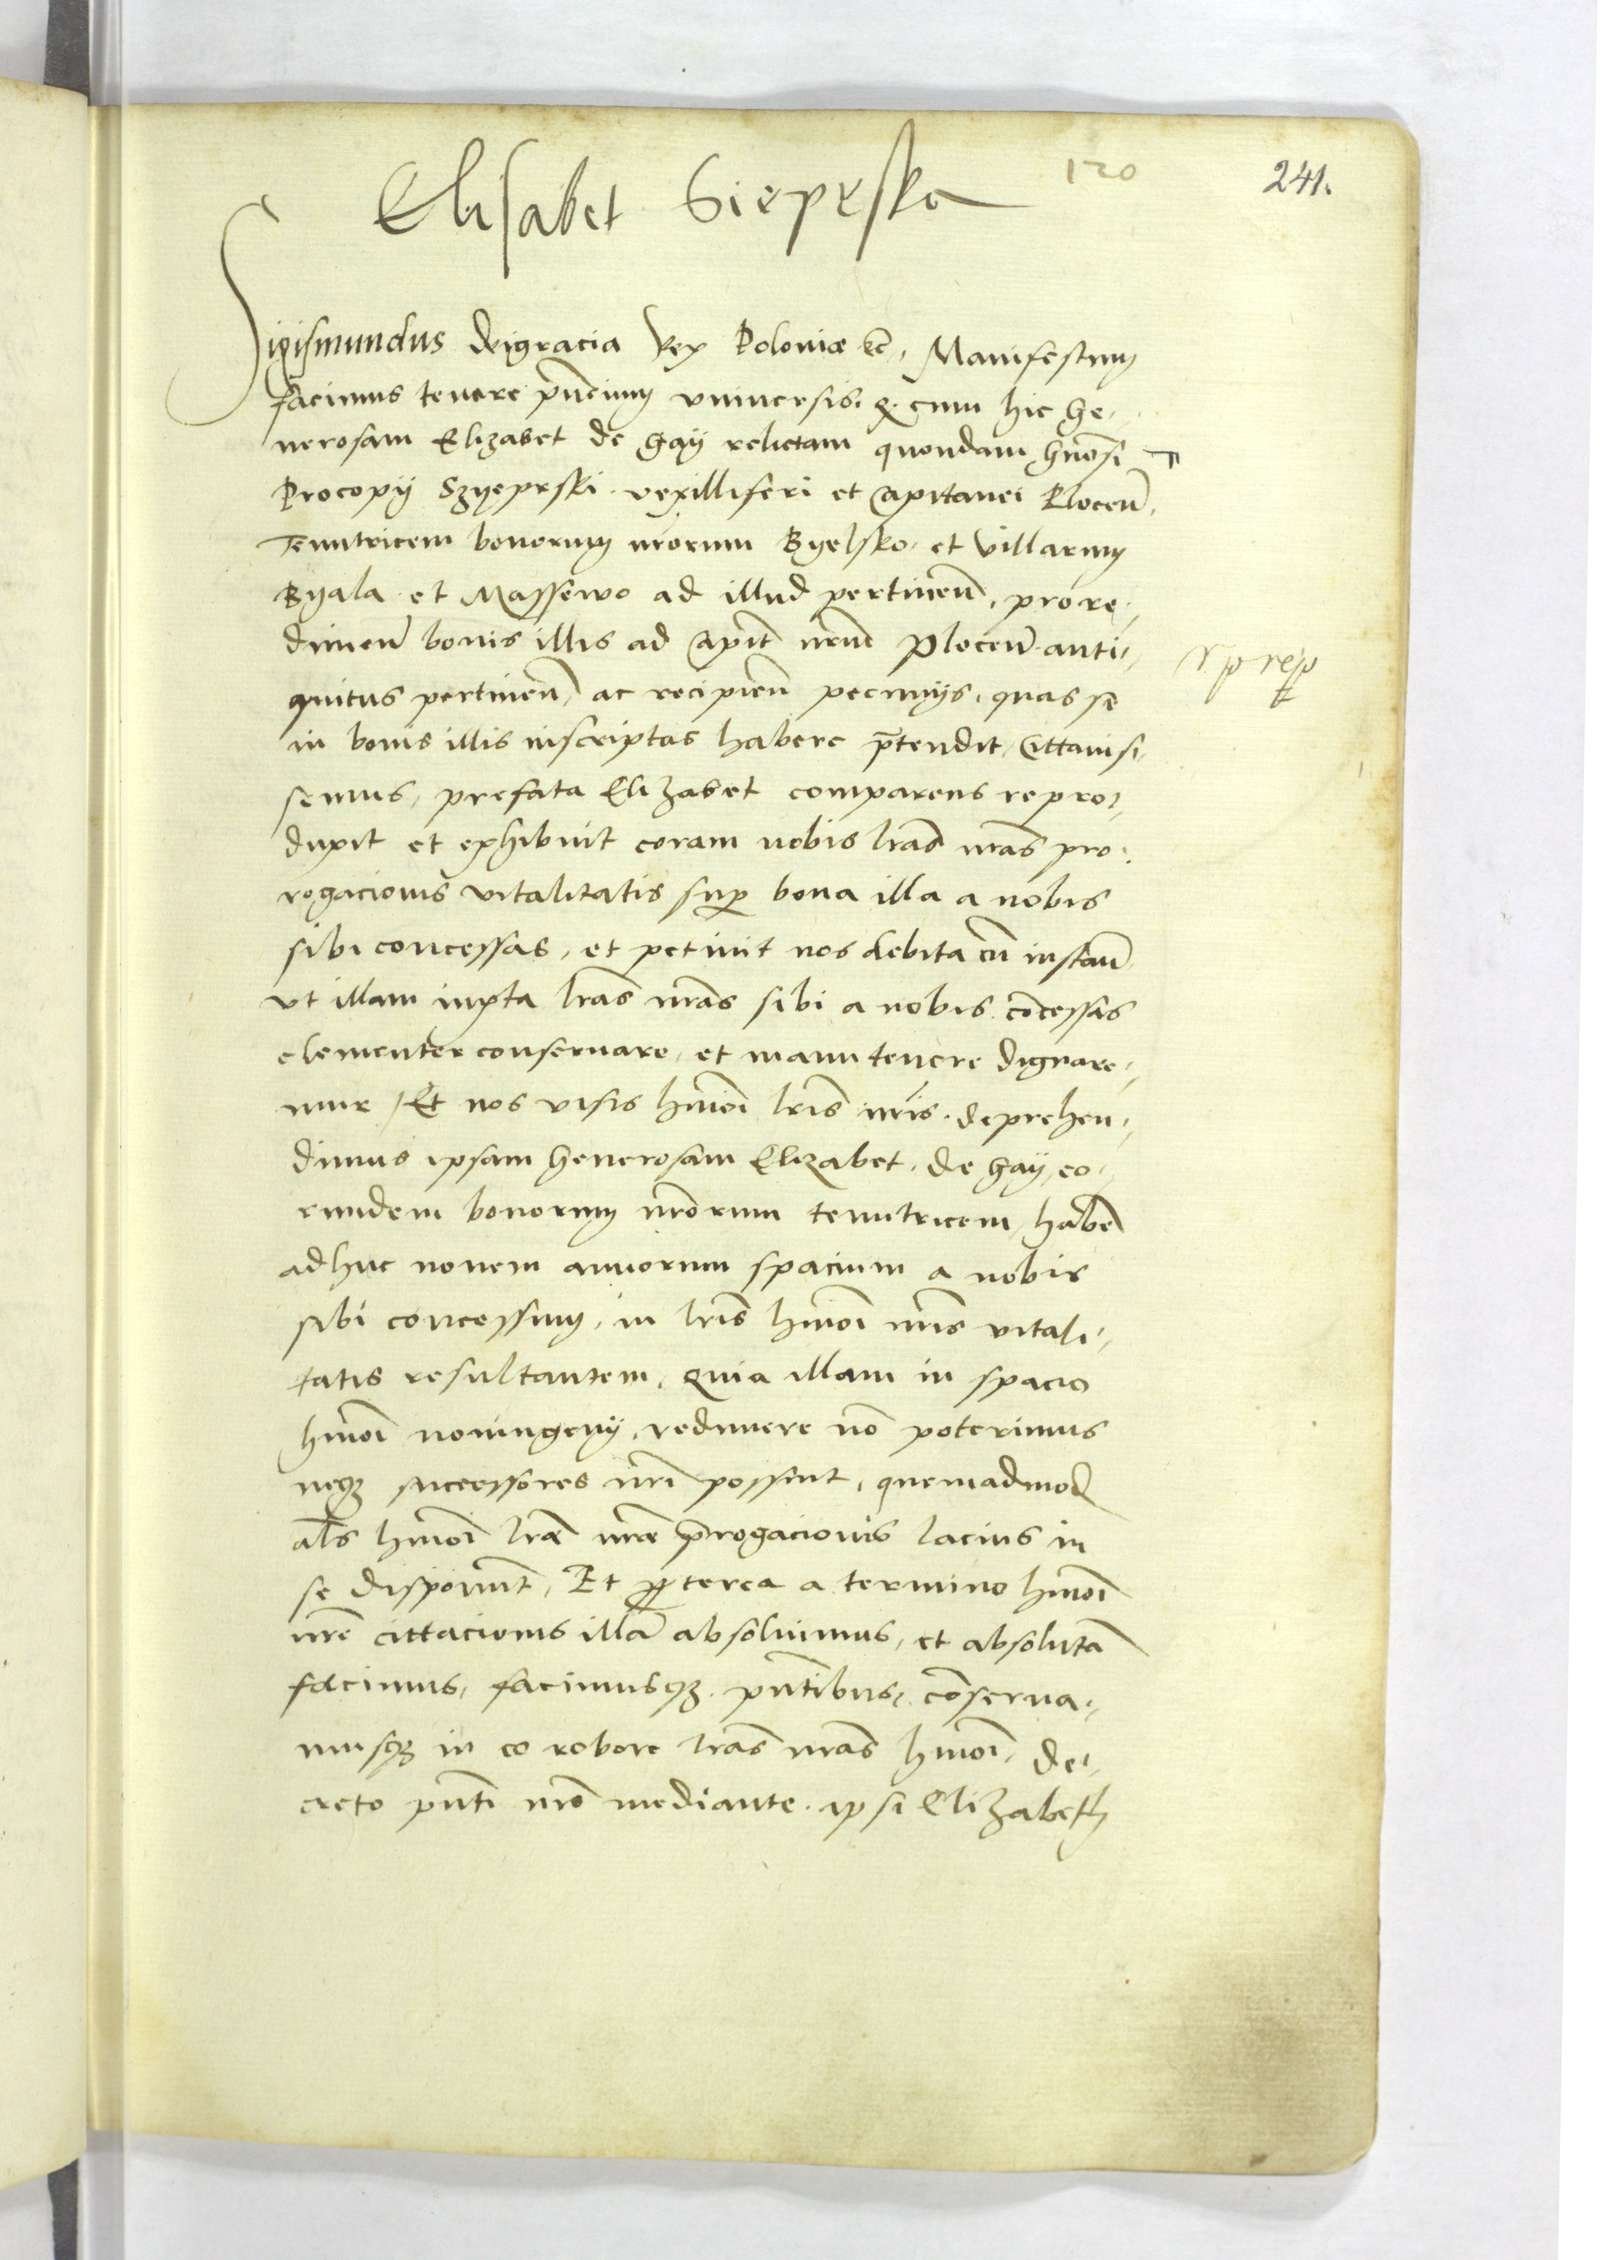 120
241.
Elisabet Siepꝛska
Sigismundus Deigracia Rex Poloniæ etc̃, Manifestum
facimus tenore pñcium vniuersis. q. cum hic Ge-
nerosam Elizabet de Gay relictam quondam Gñosi
Procopÿ Szyeprski vexilliferi et Capitanei Plocen̄,
Tenutricem bonorum nr̄orum Byelsko, et Villarum
Byala et Massewo ad illud pertinen̄, pro re-
dimen̄ bonis illis ad Capit̄ nr̄um Plocen̄ anti-
quitus pertinen̄, ac recipien̄ pecunijs, quas se
in bonis illis inscriptas habere p̄tendit, Cittauis-
semus, prefata Elizabet comparens repro-
duxit et exhibuit coram nobis lr̄as nr̄as pro-
rogacionis vitalitatis sup̱ bona illa a nobis
sibi concessas, et petiuit nos debita cū instan̄
vt illam iuxta lr̄as nr̄as sibi a nobis cōcessas
clementer conseruare, et manutenere dignare-
mur, Et nos visis hmōi lr̄is nr̄is. deprehen-
dimus ipsam Generosam Elizabet, de Gay, eo-
rundem bonorum nr̄orum tenutricem, haben̄
adhuc nouem annorum spacium a nobis
sibi concessum, in lr̄is hmōi nr̄is vitali-
tatis resultantem, quia illam in spacio
hmōi nouingenÿ, redimere nō poterimus
neqꝫ successores nr̄i possint, quemadmod̄
al̄s hmōi lr̄æ nr̄æ p̄rogacionis lacius in
se disponunt, Et ꝓpterea a termino hmōi
nr̄e cittacionis illā absoluimus, et absolutā
facimus, facimusqꝫ pn̄tibus, cōserua-
musqꝫ in eo robore lr̄as nr̄as hmōi, de-
creto pn̄ti nr̄o mediante ipsi Elizabeth